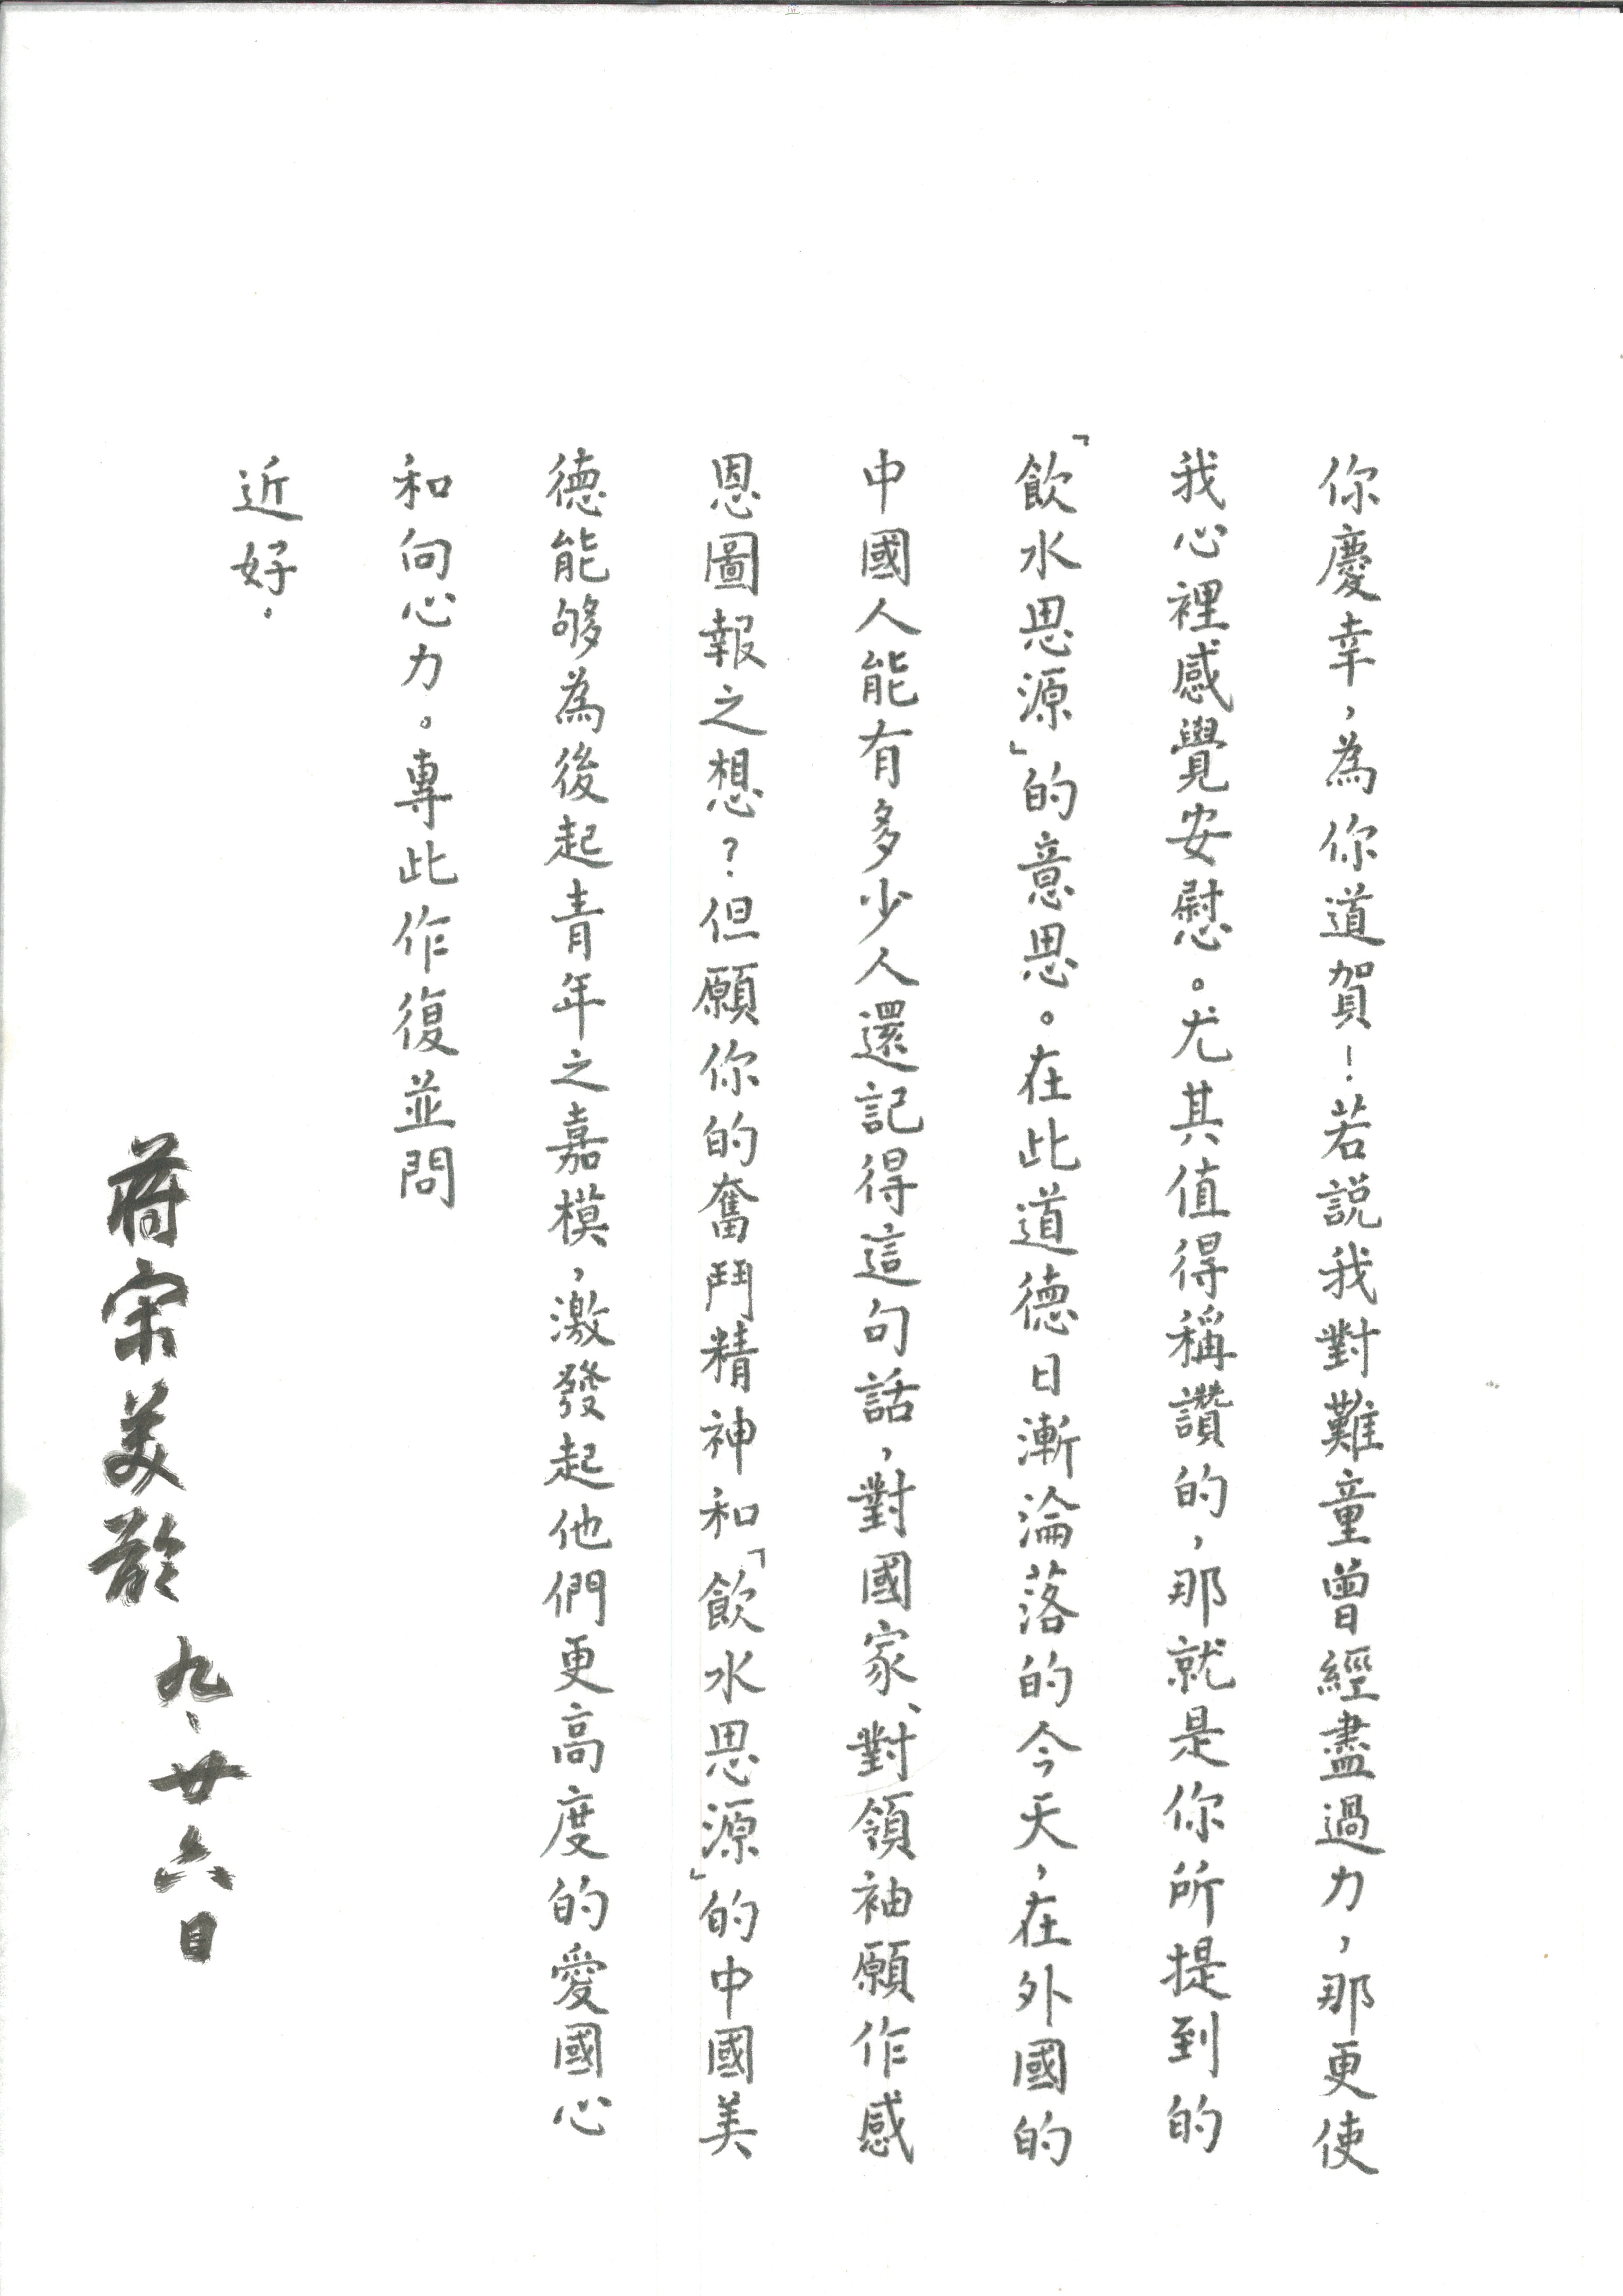 你慶幸，為你道賀！若說我對難童曾經盡過力，那更使
我心裡感覺安慰。尤其值得稱讚的，那就是你所提到的
「飲水思源」的意思。在此道德日漸淪落的今天，在外國的
中國人能有多少人還記得這句話，對國家、對領袖願作感
恩圖報之想？但願你的奮鬥精神和「飲水思源」的中國美
德能够為後起青年之嘉模，激發起他們更高度的愛國心
和向心力。專此作復並問
近好．
蔣宋美齡
九、廿六日